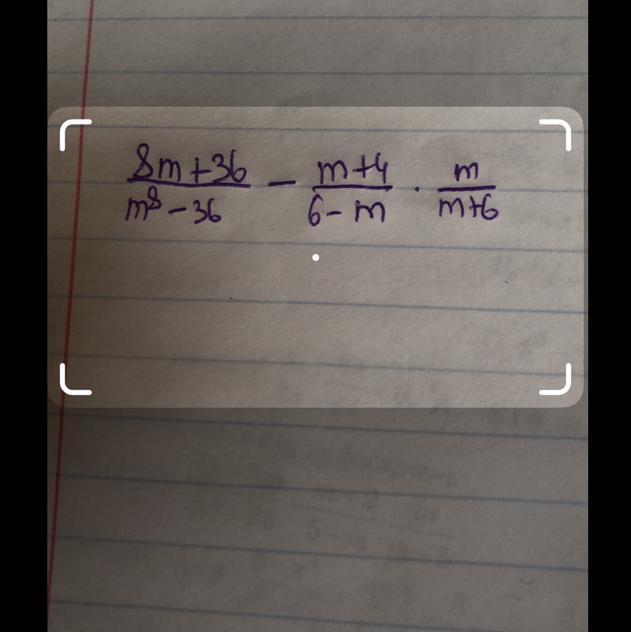 (8m+36)/(m⁸-36) - (m+4)/(6-m) · m/(m+6)